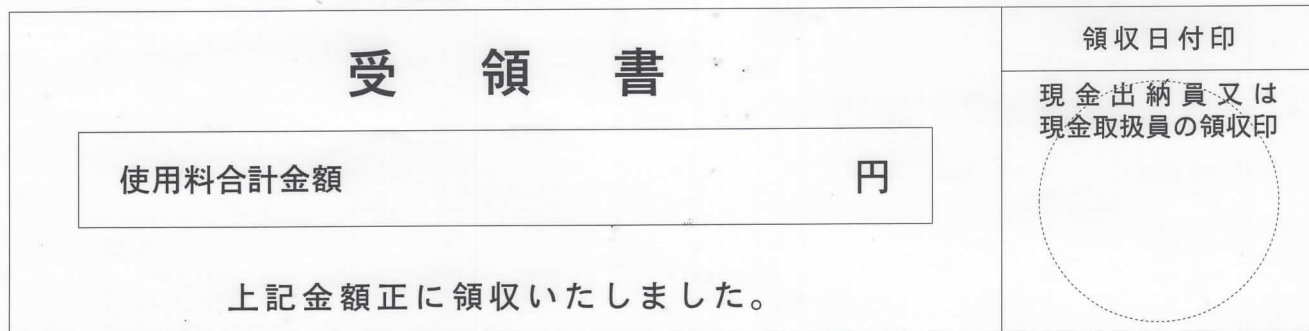 受領書
使用料合計金額 円
上記金額正に領収いたしました。
領収日付印
現金出納員又は
現金取扱員の領収印